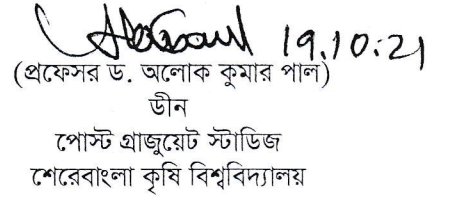 19.10.21
(প্রফেসর ড. অলোক কুমার পাল)
ডীন
পোস্ট গ্রাজুয়েট স্টাডিজ
শেরেবাংলা কৃষি বিশ্ববিদ্যালয়